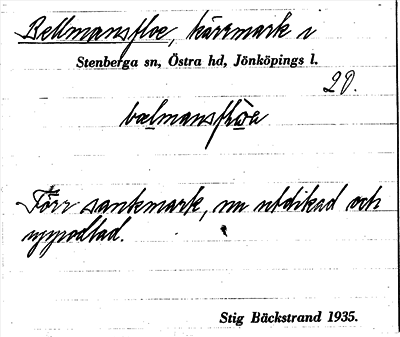 Bellmansfloe, kärrmark i
Stenberga sn, Östra hd, Jönköpings l.
20.
bælmansflωa
Förr sankmark, nu utdikad och
uppodlad.
Stig Bäckstrand 1935.